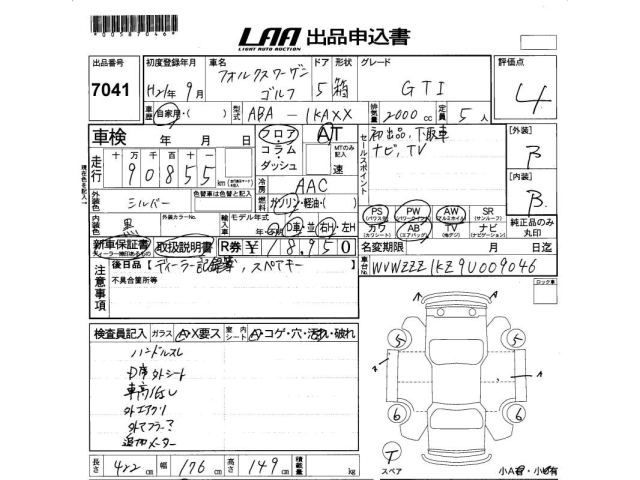 *00587046*
LAA 出品申込書
LIGHT AUTO AUCTION
出品番号 初度登録年月 車名 ドア 形状 グレード 評価点
7041 H21年9月 フォルクスワーゲン ゴルフ 5 箱 GTI 4
車歴 自家用・( ) 型式 ABA-1KAXX 排気量 2000cc 定員 5人
車検 年 月 日 フロア・コラム・ダッシュ AT セールスポイント 初出品、下取車 [外装] B
MTのみ記入 速 ナビ、TV
走行 十万 万 千 百 十 一
90855km 冷房 AAC [内装] B
現在色を記入→
外装色 シルバー 色替車は色替と記入 燃料 ガソリン・軽油・( )
PS (パワステ) PW (パワーウインド) AW (アルミホイル) SR (サンルーフ) 純正品のみ丸印
内装色 黒 外装カラーNo. 輸入車 モデル年式 年 D車・並 右H・左H
カワ (カワシート) AB (エアバッグ) TV (地デジ) ナビ (ナビゲーション)
新車保証書 取扱説明書 R券 ¥18,950 名変期限 月 日迄
注意事項 後日品【ディーラー記録簿、スペアキー
不具合箇所等
車台No. WVWZZZ1KZ9U009046
ロック車
検査員記入 ガラス A・X要ス 室内シート A・コゲ・穴・汚れ・破れ
ハンドルスレ
D席外シート
車高低し
外エアクリ
外マフラー
追加メーター
5 5
A
6 6
T
スペア
長さ 422cm 幅 176cm 高さ 149cm 積載量 kg
小A有・小凹有